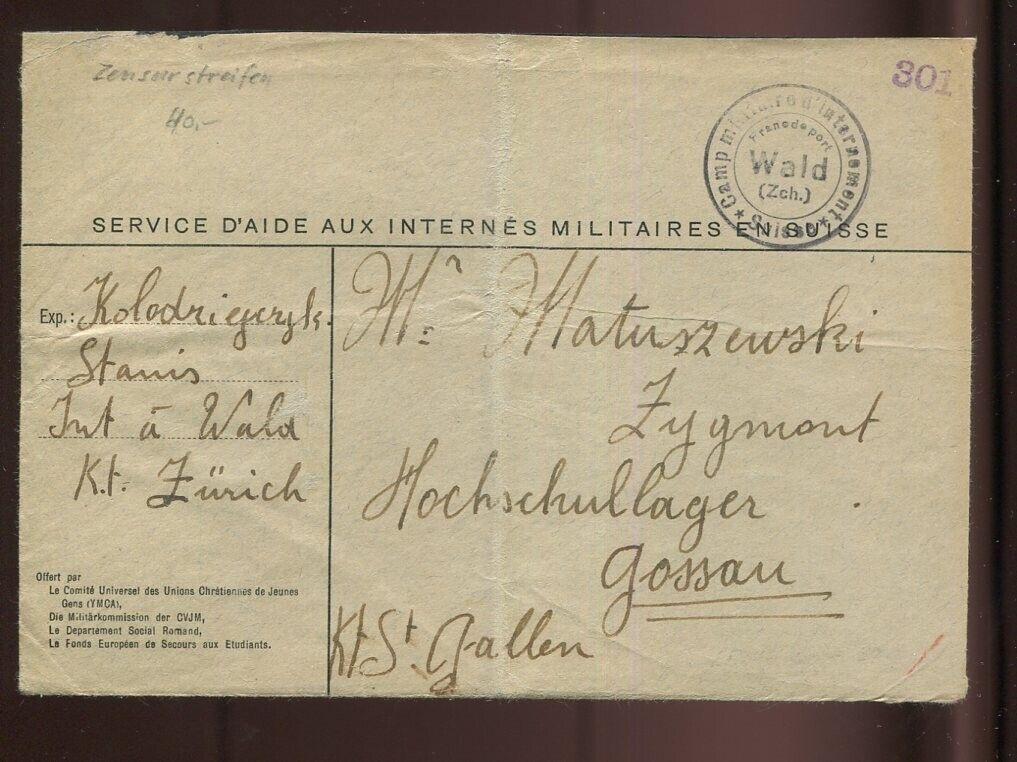 Zensurstreifen
40.-
301
Camp militaire d'internement
Franc de port
Wald
(Zch.)
Suisse
SERVICE D'AIDE AUX INTERNÉS MILITAIRES EN SUISSE
Exp.: Kolodziejczyk.
Stanis
Int à Wald
Kt. Zürich
Mr Matuszewski
Zygmont
Hochschullager
Gossau
Kt St. Gallen
Offert par
Le Comité Universel des Unions Chrétiennes de Jeunes
Gens (YMCA),
Die Militärkommission der CVJM,
Le Departement Social Romand,
Le Fonds Européen de Secours aux Etudiants.